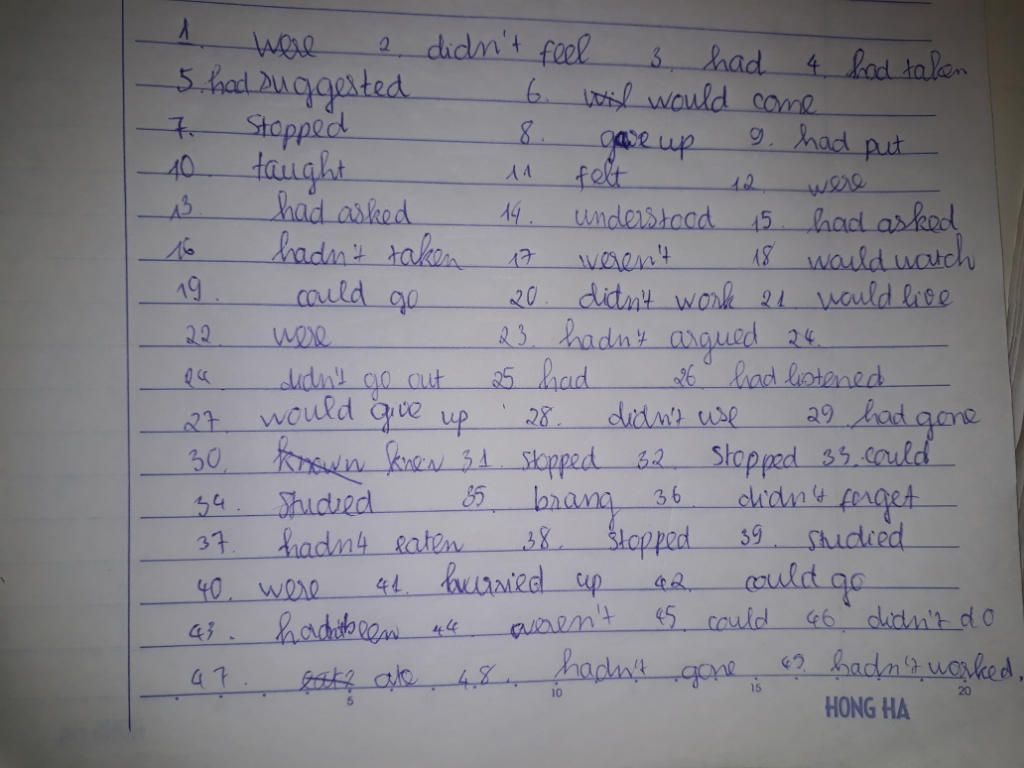 1. were 2. didn't feel 3. had 4. had taken
5. had suggested 6. would come
7. stopped 8. gave up 9. had put
10 taught 11 felt 12. were
13. had asked 14. understood 15. had asked
16 hadn't taken 17 weren't 18 would watch
19. could go 20. didn't work 21 would live
22. were 23. hadn't argued 24.
24. didn't go out 25 had 26 had listened
27. would give up 28. didn't use 29 had gone
30. known knew 31. stopped 32. stopped 33. could
34. studied 35 brang 36 didn't forget
37. hadn't eaten 38. stopped 39. studied
40. were 41. hurried up 42. could go
43. 44 weren't 45. could 46. didn't do
47. ate 48. hadn't gone 49 hadn't worked.
5 10 15 20
HONG HA